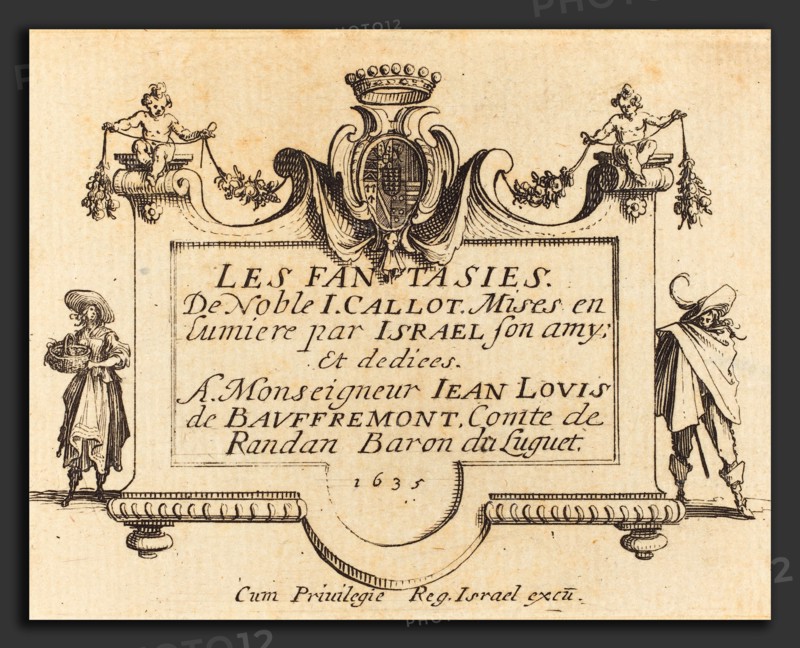 LES FANTASIES.
De Noble I. CALLOT. Mises en
lumiere par ISRAEL son amy;
Et dediees.
A. Monseigneur IEAN LOVIS
de BAVFFREMONT, Comte de
Randan Baron du Luguet.
1635
Cum Priuilegie Reg. Israel excū.
PHOTO12
PHOTO12
PHOTO12